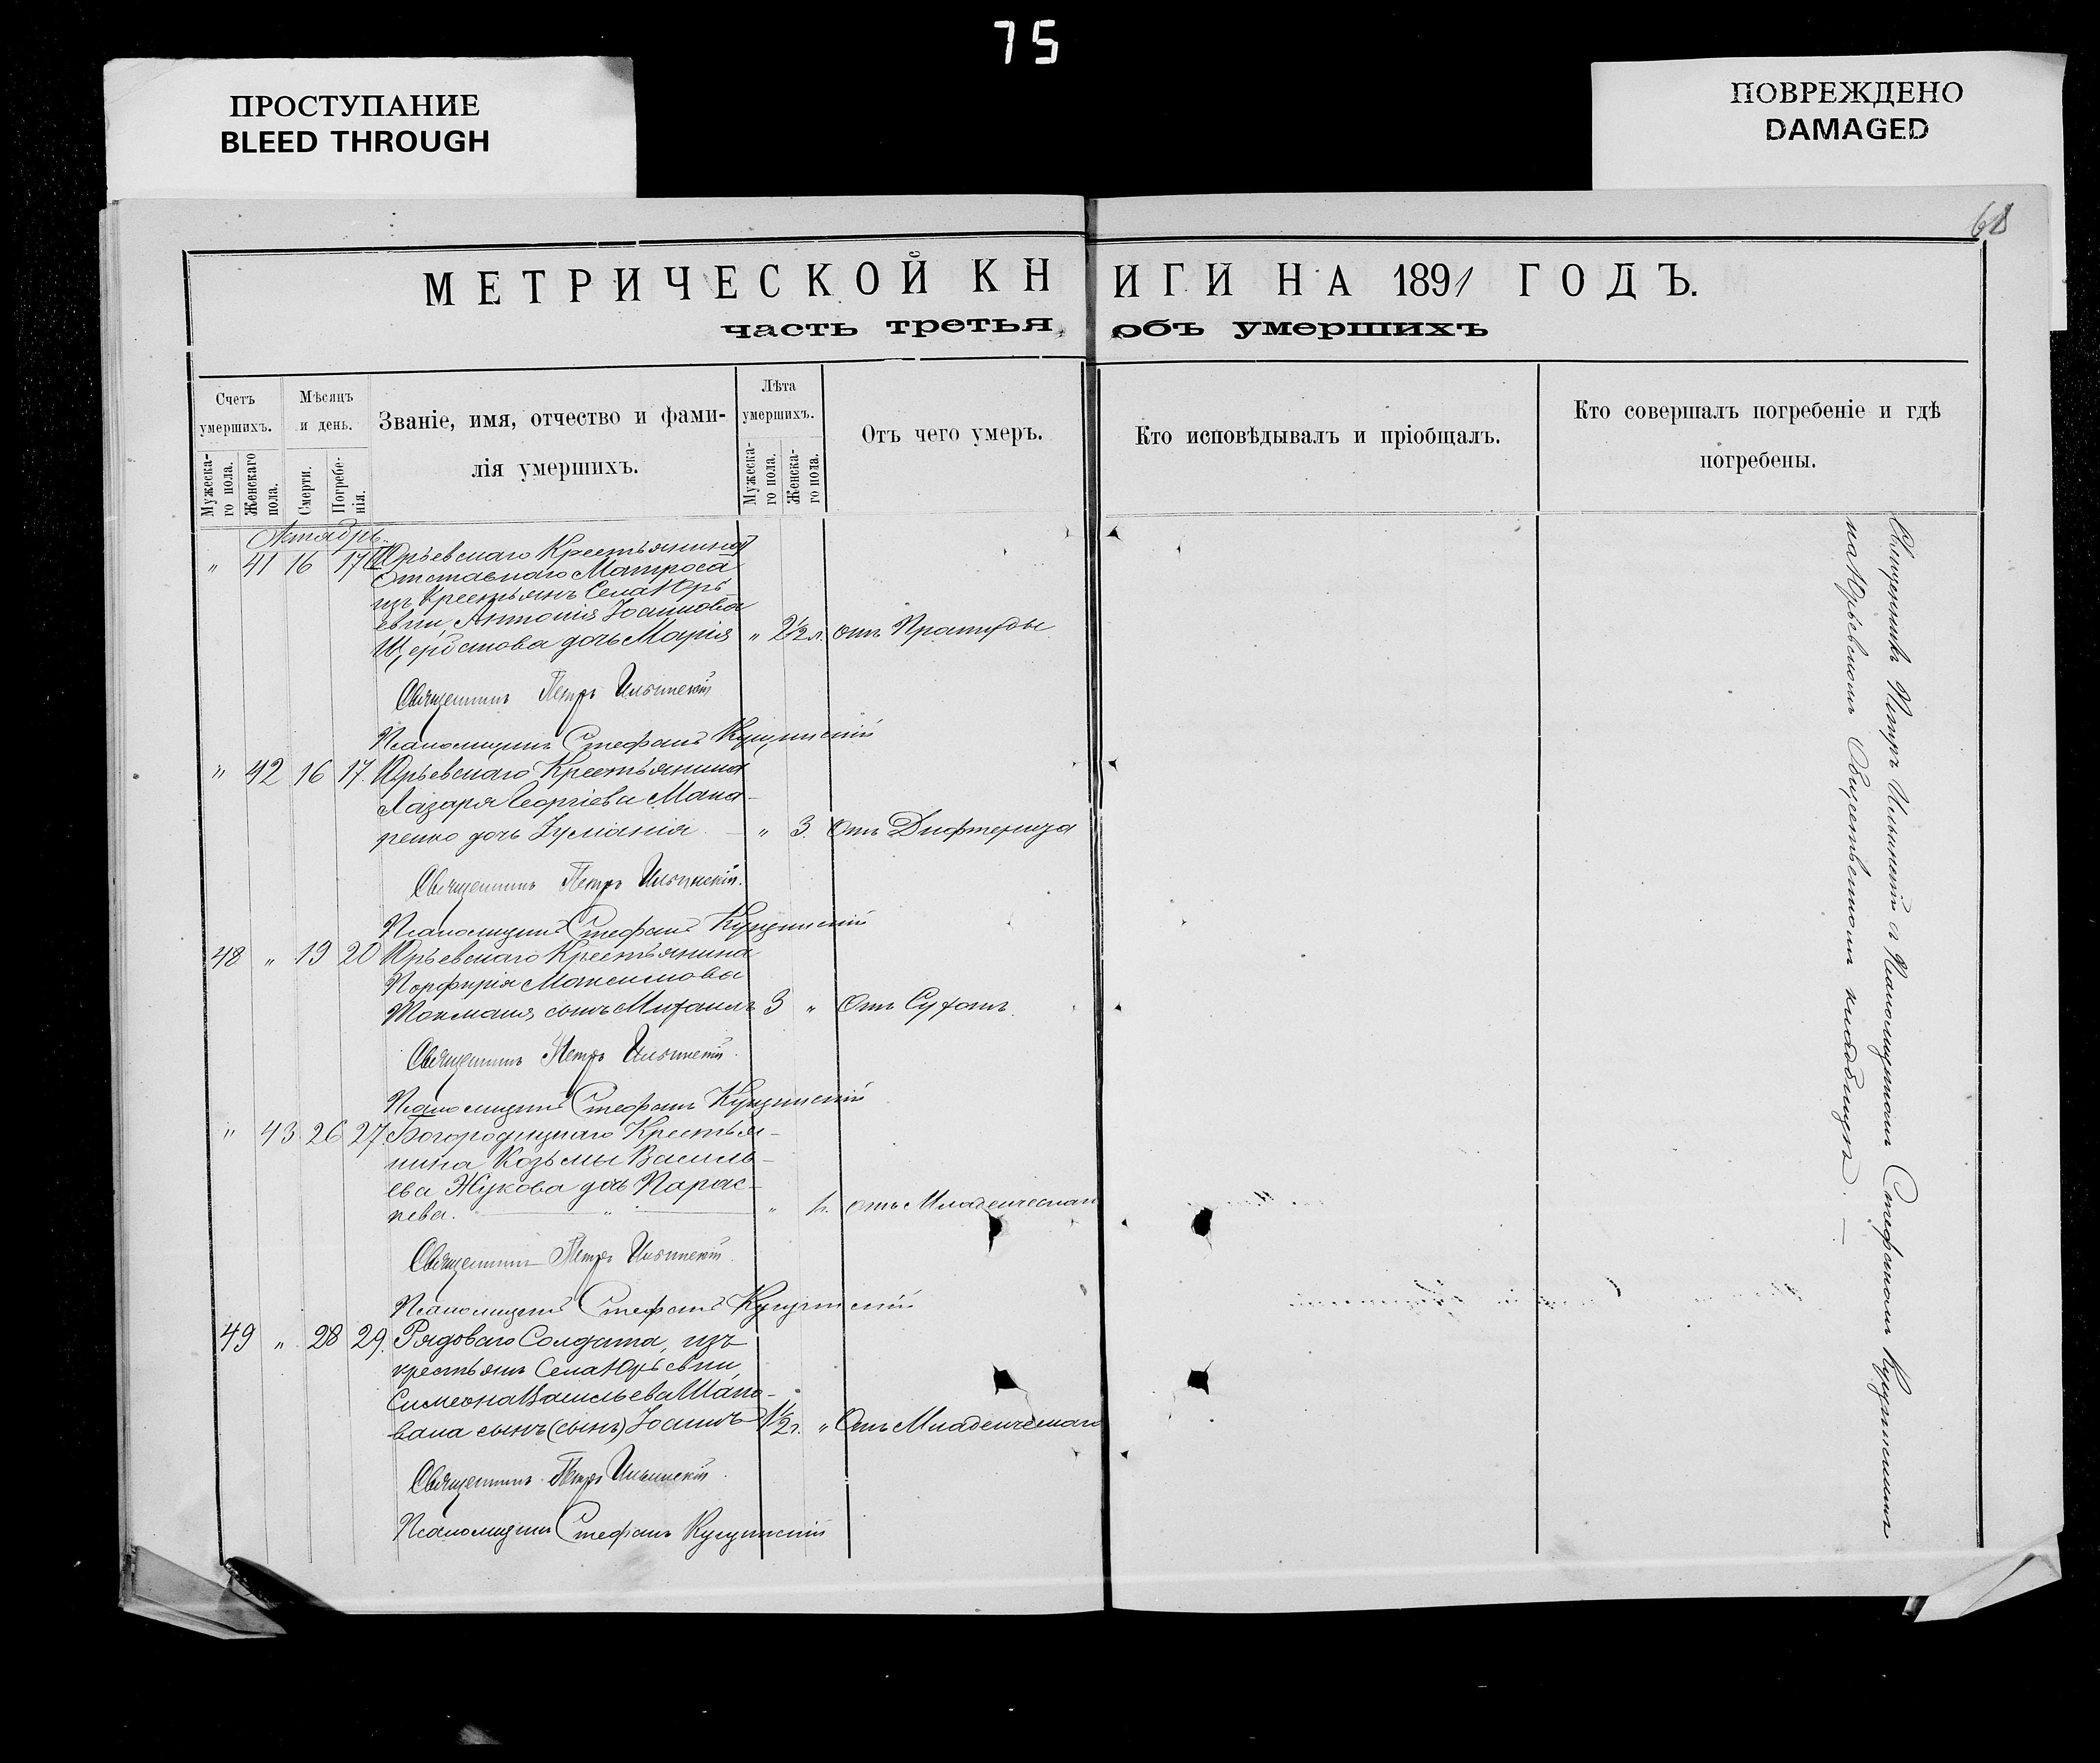 75
ПРОСТУПАНИЕ
BLEED THROUGH
ПОВРЕЖДЕНО
DAMAGED
68
МЕТРИЧЕСКОЙ КНИГИ НА 1891 ГОДЪ.
часть третья, объ умершихъ
Счетъ умершихъ.
Мужескаго пола.
Женскаго пола.
Мѣсяцъ и день.
Смерти.
Погребенія.
Званіе, имя, отчество и фами-
лія умершихъ.
Лѣта умершихъ.
Мужескаго пола.
Женскаго пола.
Отъ чего умеръ.
Кто исповѣдывалъ и пріобщалъ.
Кто совершалъ погребеніе и гдѣ
погребены.
Октябрь.
" 41 16 17 Юрьевскаго Крестьянина
Отставнаго Матроса
изъ Крестьянъ Села Юрь-
евки Антонія Іоаннова
Щербакова дочь Марія " 2½ л. отъ Простуды
Священникъ Петръ Ильинскій
Псаломщикъ Стефанъ
" 42 16 17. Юрьевскаго Крестьянина
Лазаря Георгіева Мака-
ренко дочь Іуліанія " 3. Отъ Дифтерита
Священникъ Петръ Ильинскій.
Псаломщикъ Стефанъ
48 " 19 20 Юрьевскаго Крестьянина
Порфирія Максимова
Токманя сынъ Михаилъ 3 " Отъ Сухотъ.
Священникъ Петръ Ильинскій.
Псаломщикъ Стефанъ
" 43 26 27. Богородицкаго Крестья-
нина Козьмы Василь-
ева Жукова дочь Парас-
кева. " отъ Младенческаго
Священникъ Петръ Ильинскій.
Псаломщикъ Стефанъ
49 " 28 29. Рядоваго Солдата, изъ
крестьянъ Села Юрьевки
Симеона Васильева Шапо-
вала сынъ (сынъ) Іоаннъ 1½ г. " Отъ Младенческаго
Священникъ Петръ Ильинскій.
Псаломщикъ Стефанъ
Священникъ Петръ Ильинскій съ Псаломщикомъ Стефаномъ
на Юрьевскомъ Общественномъ кладбищѣ. —